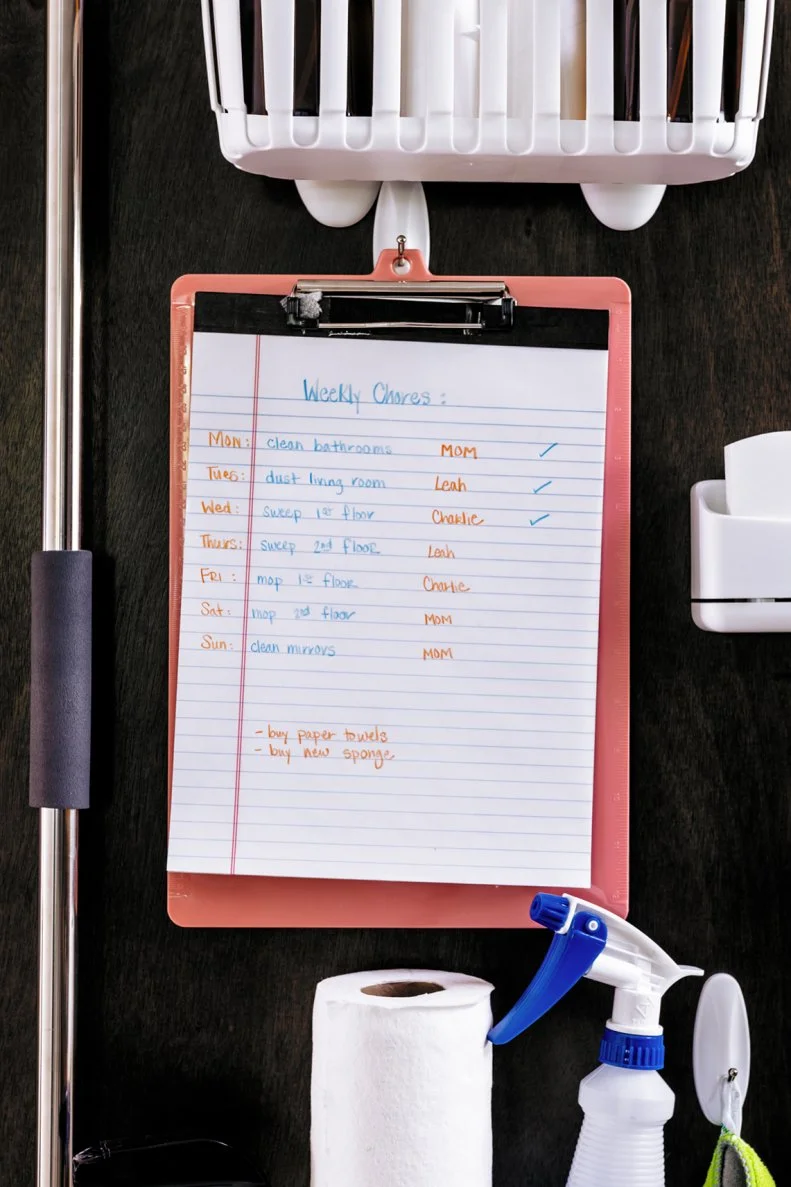 Weekly Chores :
Mon: clean bathrooms MOM ✓
Tues: dust living room Leah ✓
Wed: sweep 1st floor Charlie ✓
Thurs: sweep 2nd floor Leah
Fri: mop 1st floor Charlie
Sat: mop 2nd floor MOM
Sun: clean mirrors MOM
- buy paper towels
- buy new sponge